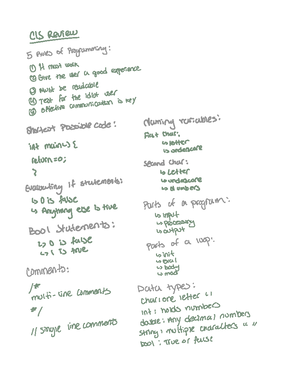 CIS Review
5 Rules of Programming:
① It must work
② Give the user a good experience
③ Must be readable
④ Test for the idiot user
⑤ effective communication is key
Shortest Possible Code:
int main() {
return=0;
}
Evaluating if statements:
↳ 0 is false
↳ Anything else is true
Bool Statements:
↳ 0 is false
↳ 1 is true
Comments:
/*
multi-line comments
*/
// single line comments
Naming Variables:
First Char:
↳ letter
↳ underscore
Second Char:
↳ Letter
↳ underscore
↳ numbers
Parts of a program:
↳ input
↳ processing
↳ output
Parts of a loop:
↳ init
↳ eval
↳ body
↳ mod
Data types:
char: one letter ' '
int: holds numbers
double: Any decimal numbers
string: multiple characters " "
bool: True or false